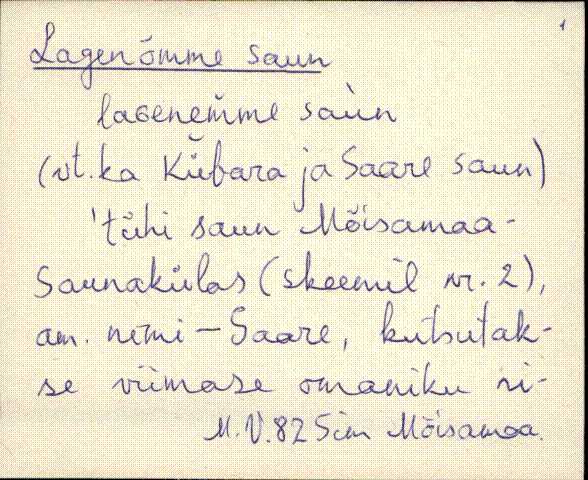 1
Lagenõmme saun
laGenem̆me saùn
(vt. ka Kübara ja Saare saun)
'tühi saun Mõisamaa-
Saunakülas (skeemil nr. 2),
am. nimi – Saare, kutsutak-
se viimase omaniku ni-
M.V. 82 Sim Mõisamaa.